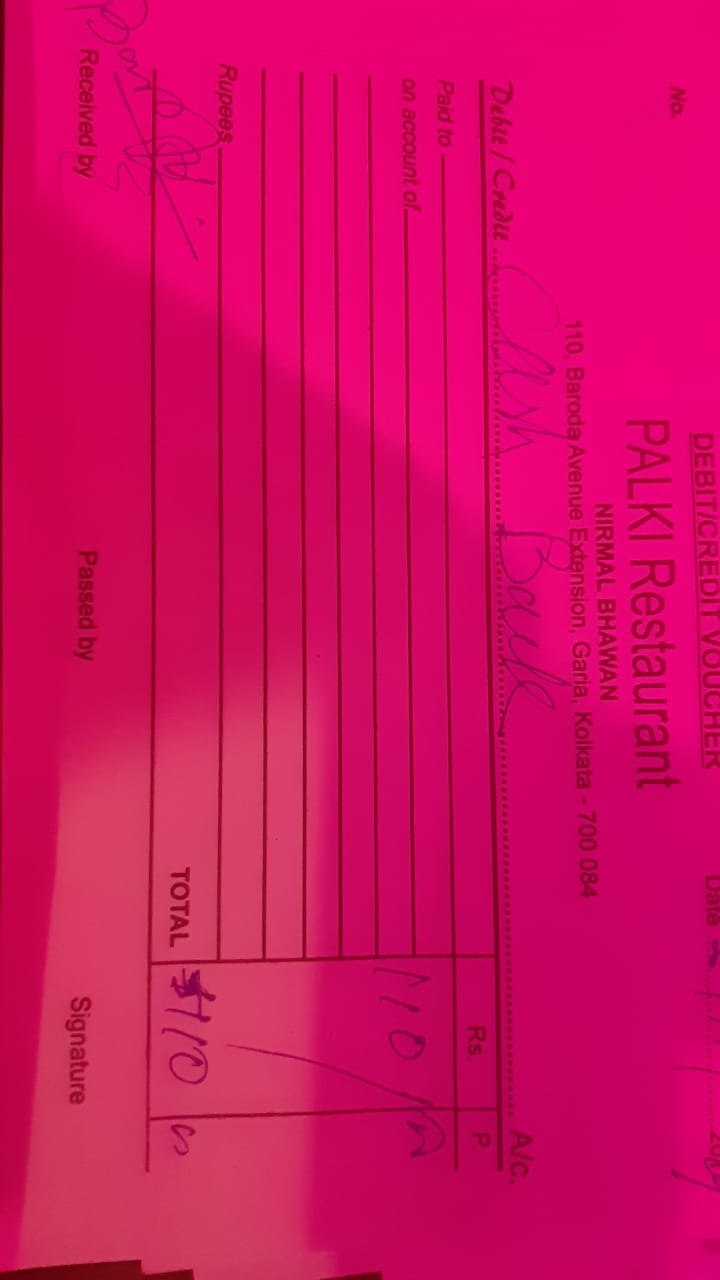 DEBIT/CREDIT VOUCHER
No.
Date
PALKI Restaurant
NIRMAL BHAWAN
110, Baroda Avenue Extension, Garia, Kolkata - 700 084
Debit / Credit Cash Back A/c.
Paid to Rs. P.
on account of 110
Rupees
TOTAL 110
Received by Passed by Signature